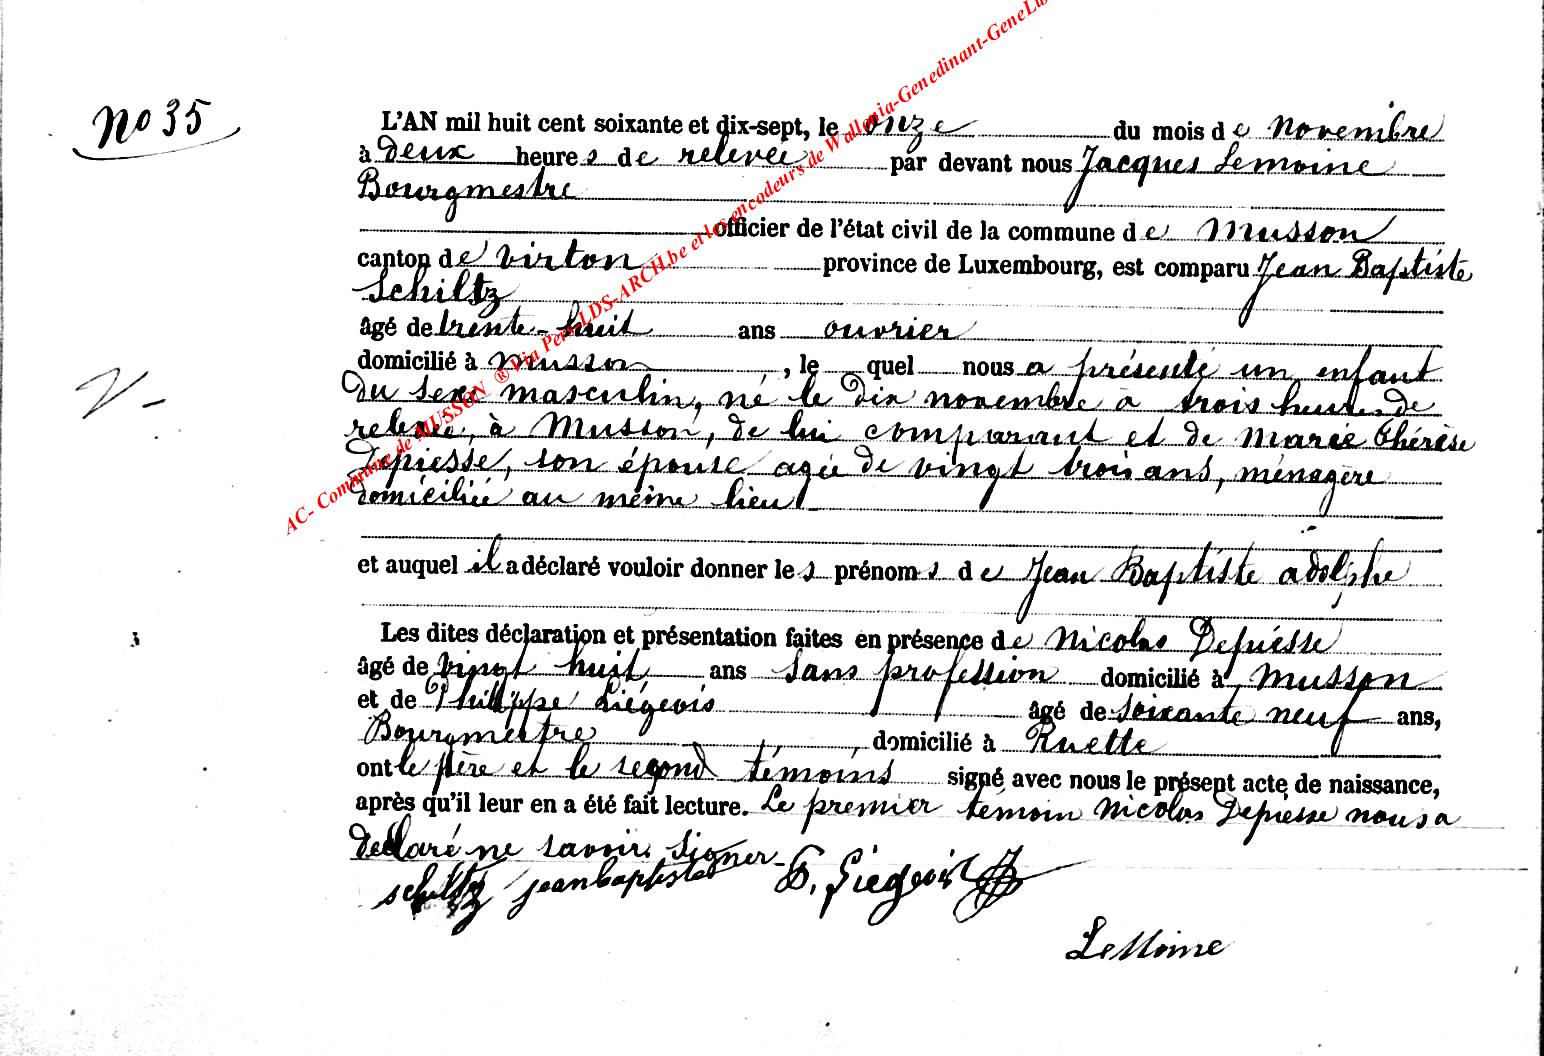 No 35
L'AN mil huit cent soixante et dix-sept, le onze du mois de novembre
à deux heures de relevée par devant nous Jacques Lemoine
Bourgmestre
officier de l'état civil de la commune de Musson
canton de Virton province de Luxembourg, est comparu Jean Baptiste
Schiltz
âgé de trente-huit ans ouvrier
domicilié à Musson, le quel nous a présenté un enfant
du sexe masculin, né le dix novembre à trois heures de
relevée, à Musson, de lui comparant et de Marie Thérèse
Depiesse, son épouse agée de vingt trois ans, ménagère
domiciliée au même lieu
et auquel il a déclaré vouloir donner les prénoms de Jean Baptiste adolphe
Les dites déclaration et présentation faites en présence de Nicolas Depiesse
âgé de vingt huit ans sans profession domicilié à Musson
et de Philippe Liégeois âgé de soixante neuf ans,
Bourgmestre, domicilié à Ruette
ont le père et le second témoins signé avec nous le présent acte de naissance,
après qu'il leur en a été fait lecture. Le premier témoin Nicolas Depiesse nous a
déclaré ne savoir signer
schiltz jean baptiste P. Liégeois
LeMoine
V-
AC- Commune de MUSSON ® Via Pers LDS-ARCH.be et les encodeurs de Wallonia-Genedinant-GeneLux